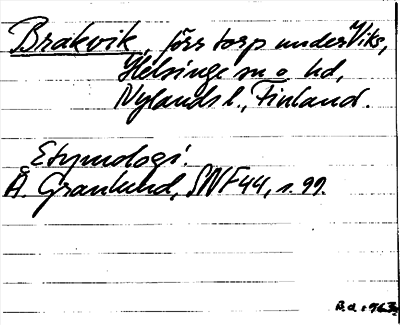 Brakvik, förr torp under Viks,
Helsinge sn o hd,
Nylands l., Finland.
Etymologi.
Å. Granlund, SNF 44, s. 99.
B.d. 1963